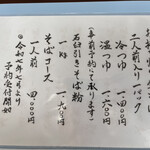 二人前入り一パック
冷つゆ 一、四〇〇円
温つゆ 一、六〇〇円
(事前予約にて承ります)
石臼引きそば粉
一kg 一、九〇〇円
そばコース
一人前 四、〇〇〇円
◎令和七年七月より
予約受付開始